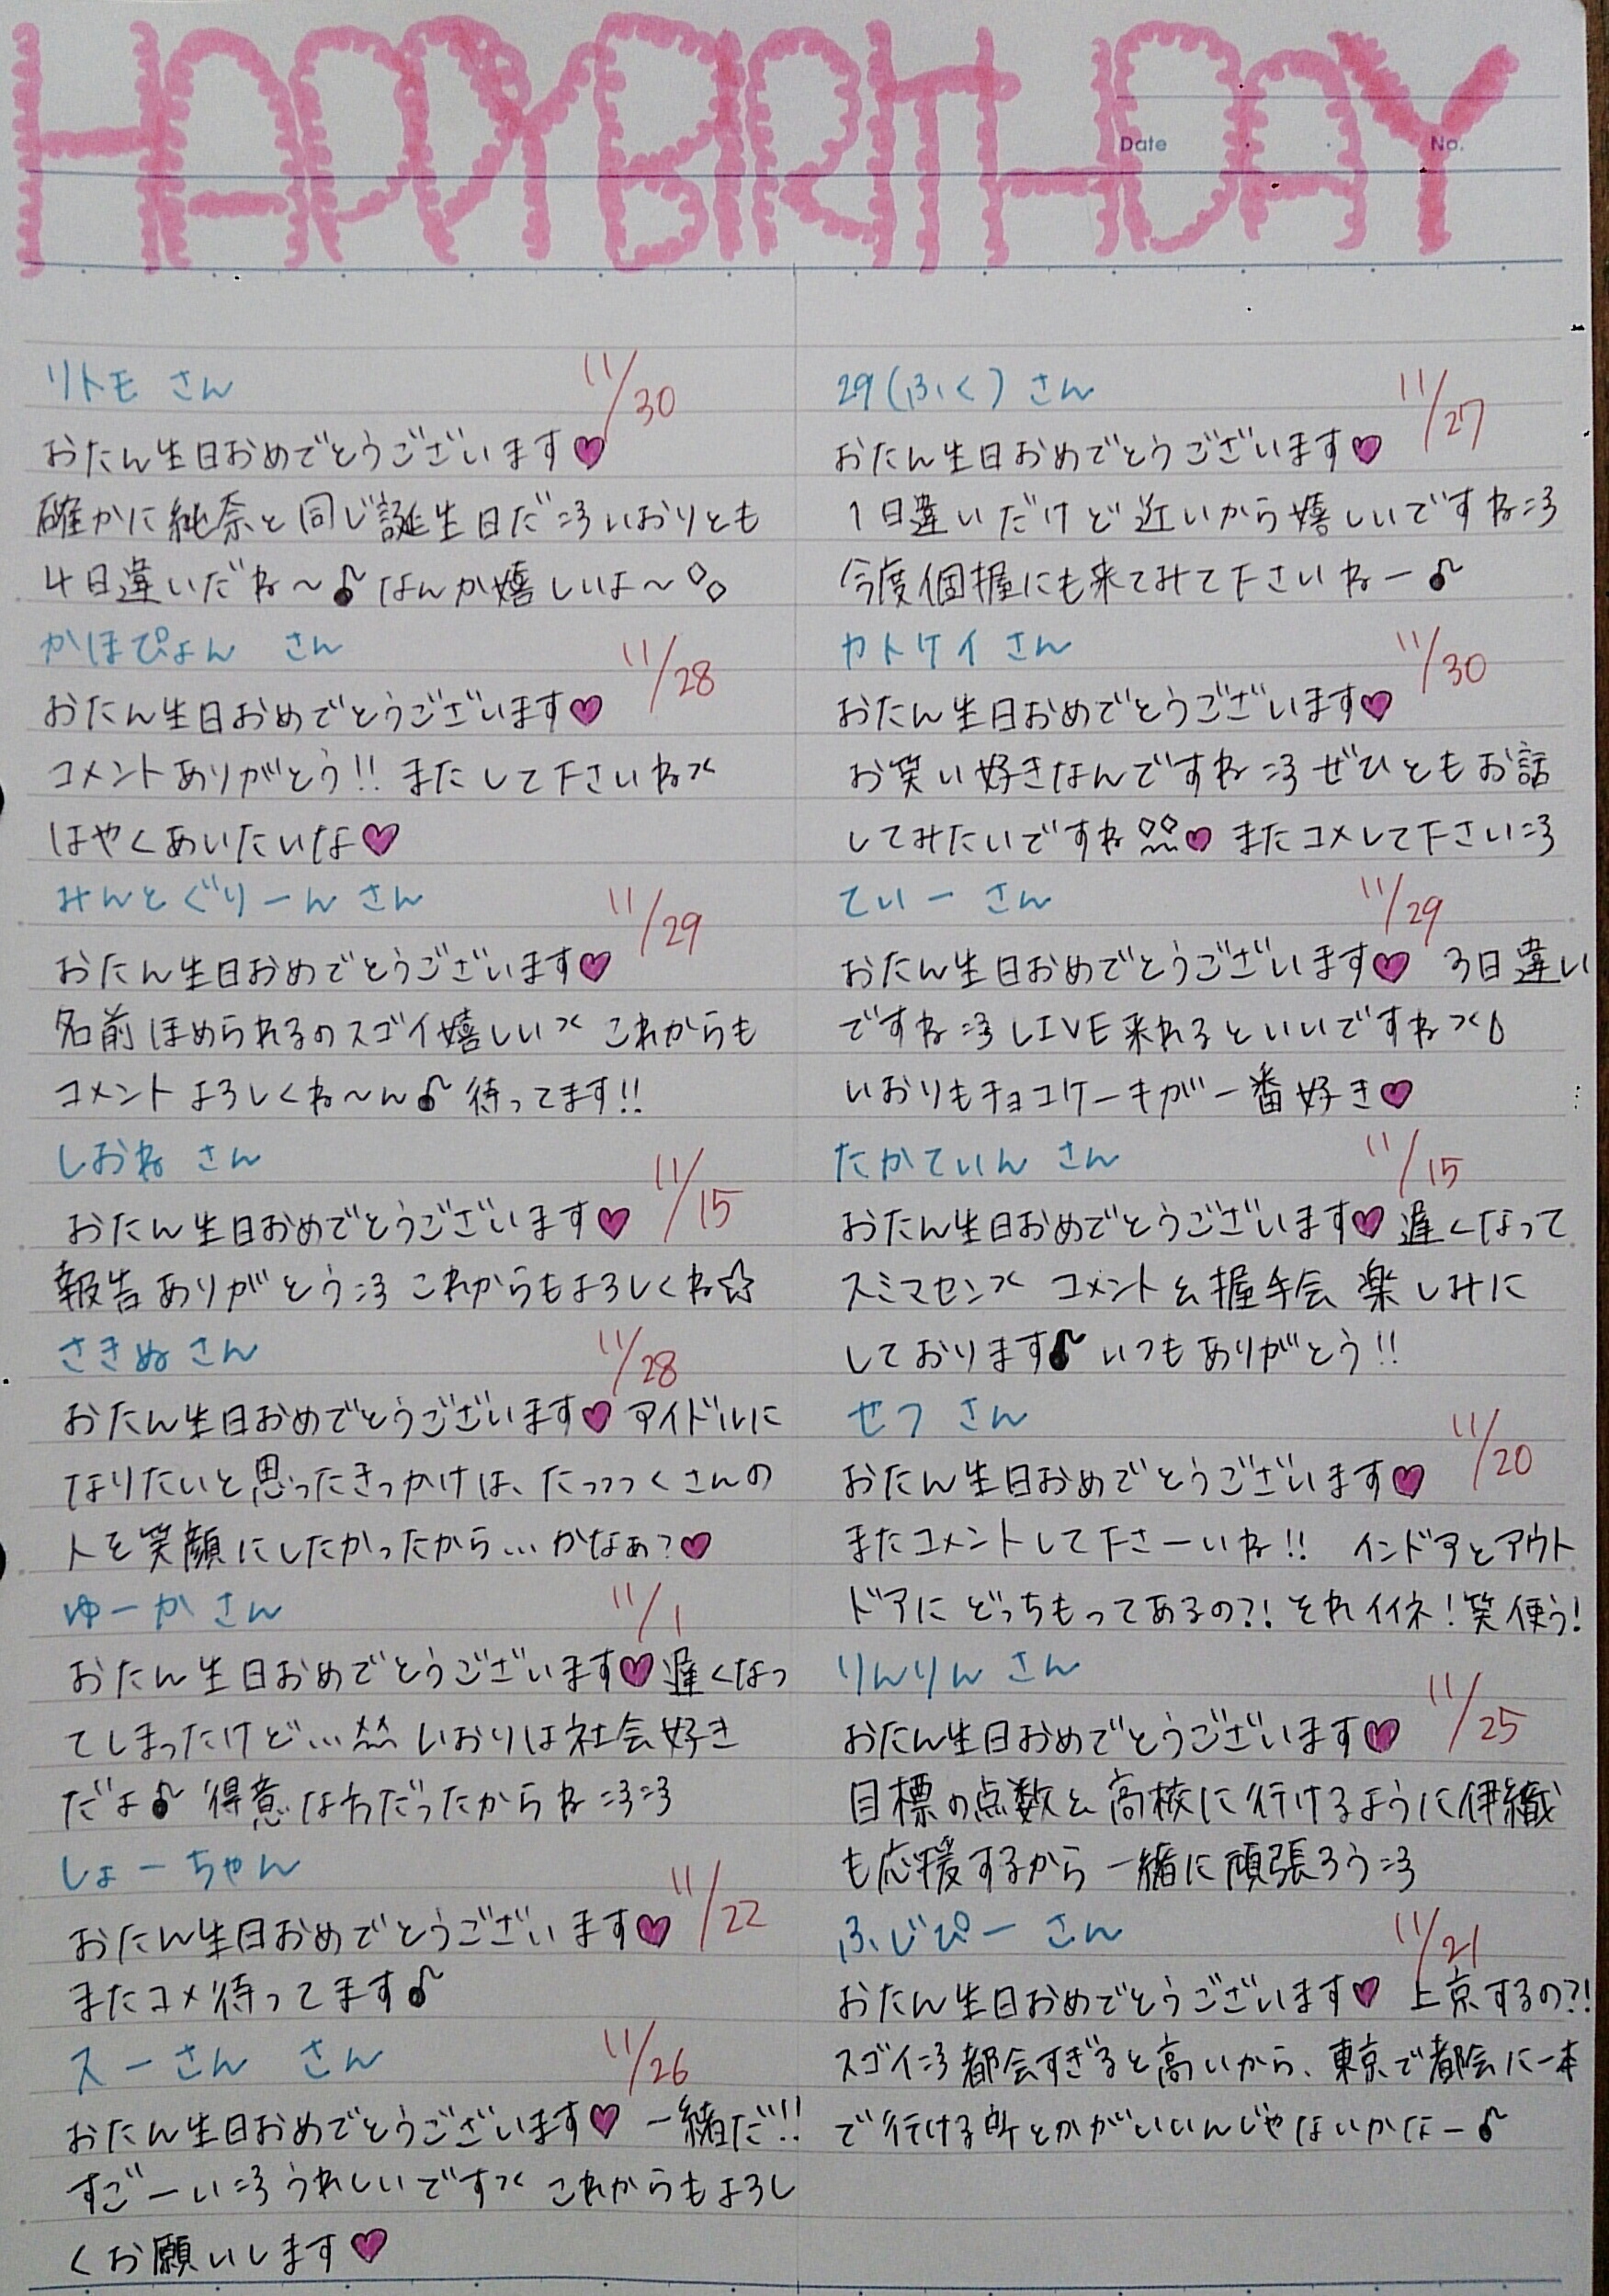 HAPPY BIRTHDAY
Date
No.
リトモ さん 11/30
おたん生日おめでとうございます♥
確かに純奈と同じ誕生日だ=3 いおりとも
4日違いだね〜♪ なんか嬉しいよ〜
かほぴょん さん 11/28
おたん生日おめでとうございます♥
コメントありがとう!! またして下さいね
はやくあいたいな♥
みんとぐりーん さん 11/29
おたん生日おめでとうございます♥
名前ほめられるのスゴイ嬉しい これからも
コメントよろしくね〜ん♪ 待ってます!!
しおね さん 11/15
おたん生日おめでとうございます♥
報告ありがとう=3 これからもよろしくね☆
さきぬ さん 11/28
おたん生日おめでとうございます♥ アイドルに
なりたいと思ったきっかけは、たっっっくさんの
人を笑顔にしたかったから... かなぁ?♥
ゆーか さん 11/1
おたん生日おめでとうございます♥ 遅くなっ
てしまったけど... いおりは社会好き
だよ♪ 得意な方だったからね=3=3
しょーちゃん 11/22
おたん生日おめでとうございます♥
またコメ待ってます♪
スーさん さん 11/26
おたん生日おめでとうございます♥ 一緒だ!!
すごーい=3 うれしいです これからもよろし
くお願いします♥
29(ふく) さん 11/27
おたん生日おめでとうございます♥
1日違いだけど近いから嬉しいですね=3
今度個握にも来てみて下さいねー♪
カトケイ さん 11/30
おたん生日おめでとうございます♥
お笑い好きなんですね=3 ぜひともお話
してみたいですね♥ またコメして下さい=3
てぃー さん 11/29
おたん生日おめでとうございます♥ 3日違い
ですね=3 LIVE来れるといいですね
いおりもチョコケーキが一番好き♥
たかてぃん さん 11/15
おたん生日おめでとうございます♥ 遅くなって
スミマセン コメント&握手会 楽しみに
しております♪ いつもありがとう!!
せつ さん 11/20
おたん生日おめでとうございます♥
またコメントして下さーいね!! インドアとアウト
ドアに どっちもってあるの?! それイイネ!笑 使う!
りんりん さん 11/25
おたん生日おめでとうございます♥
目標の点数&高校に行けるように伊織
も応援するから 一緒に頑張ろう=3
ふじぴー さん 11/21
おたん生日おめでとうございます♥ 上京するの?!
スゴイ=3 都会すぎると高いから、東京で都会に一本
で行ける所とかがいいんじゃないかなー♪